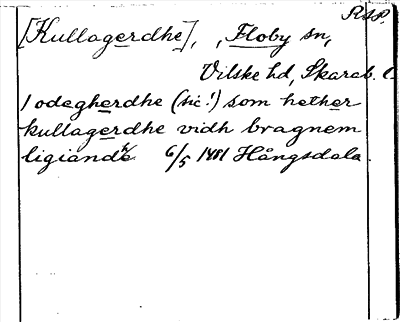 RAp.
[Kullagerdhe], , Floby sn,
Vilske hd, Skarab. l
1 odegherdhe (sic!) som hether
kullagerdhe vidh bragnem
ligiande 6/5 1481 Hångsdala.